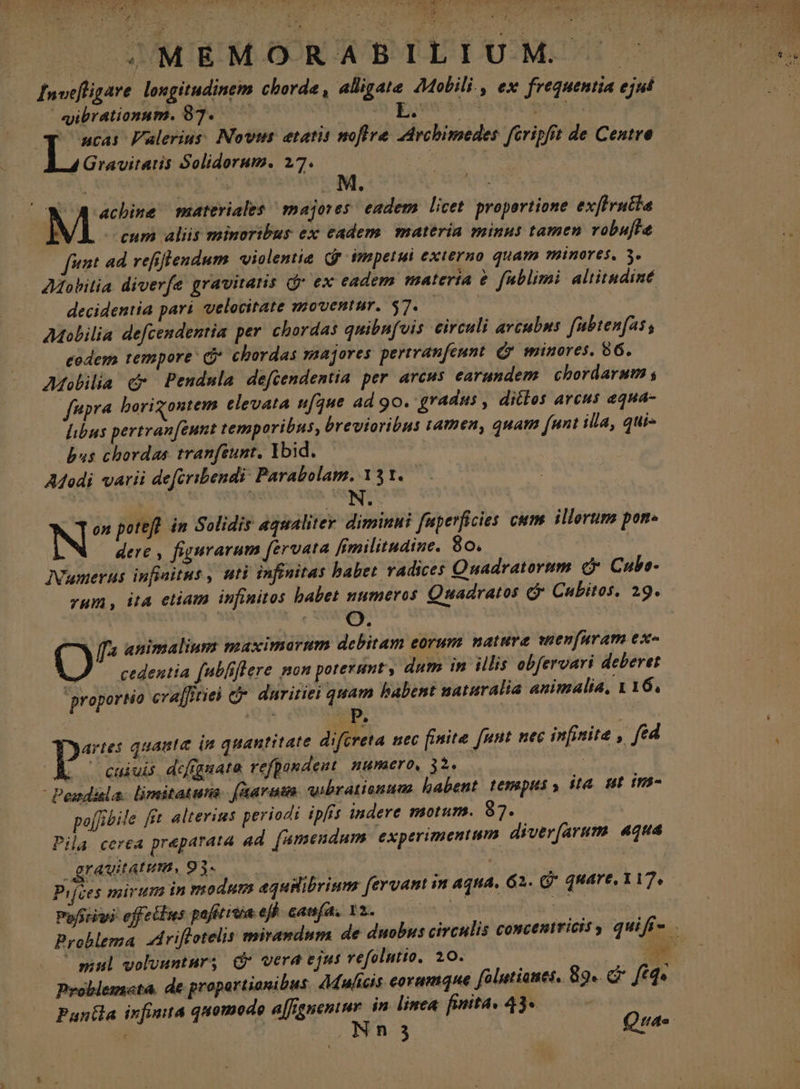 MEMORABILIUM.
Inveſtigare longitudinem chordæ, alligatæ Mobili, ex frequentia ejus
vibrationum. 87.
L.
Lucas Valerius Novus ætatis noſtræ Archimedes ſcripſit de Centro
Gravitatis Solidorum. 27.
M.
Machinæ materiales majores eadem licet proportione exſtructæ
cum aliis minoribus ex eadem materia minus tamen robuſtæ
ſunt ad reſiſtendum violentiæ & impetui externo quam minores. 3.
Mobilia diverſæ gravitatis & ex eadem materia è ſublimi altitudine
decidentia pari velocitate moventur. 57.
Mobilia deſcendentia per chordas quibuſvis circuli arcubus ſubtenſas,
eodem tempore & chordas majores pertranſeunt & minores. 86.
Mobilia & Pendula deſcendentia per arcus earundem chordarum,
ſupra horizontem elevata uſque ad 90. gradus, dictos arcus æqua-
libus pertranſeunt temporibus, brevioribus tamen, quam ſunt illa, qui-
bus chordas tranſeunt. Ibid.
Modi varii deſcribendi Parabolam. 131.
N.
Non poteſt in Solidis æqualiter diminui ſuperficies cum illorum pon-
dere, figurarum ſervata ſimilitudine. 80.
Numerus infinitus, uti infinitas habet radices Quadratorum & Cubo-
rum, ita etiam infinitos habet numeros Quadratos & Cubitos. 29.
O.
Oſſa animalium maximorum debitam eorum naturæ menſuram ex-
cedentia ſubſiſtere non poterunt, dum in illis obſervari deberet
proportio craſſitiei & duritiei quam habent naturalia animalia. 116.
P.
Partes quantæ in quantitate diſcreta nec finitæ ſunt nec infinitæ, ſed
cuivis deſignato reſpondent numero. 32.
Pendula limitatum ſuarum vibrationum habent tempus, ita ut im-
poſſibile ſit alterius periodi ipſis indere motum. 87.
Pila cerea præparata ad ſumendum experimentum diverſarum aquæ
gravitatum. 93.
Piſces mirum in modum æquilibrium ſervant in aqua. 62. & quare. 117.
Poſitivi effectus poſitiva eſt cauſa. 12.
Problema Ariſtotelis mirandum de duobus circulis concentricis, qui ſi-
mul volvuntur; & vera ejus reſolutio. 20.
Problemata de proportionibus Muſicis eorumque ſolutiones. 89. & ſeq.
Puncta infinita quomodo aſſignentur in linea finita. 43.
Nn 3
Quæ-